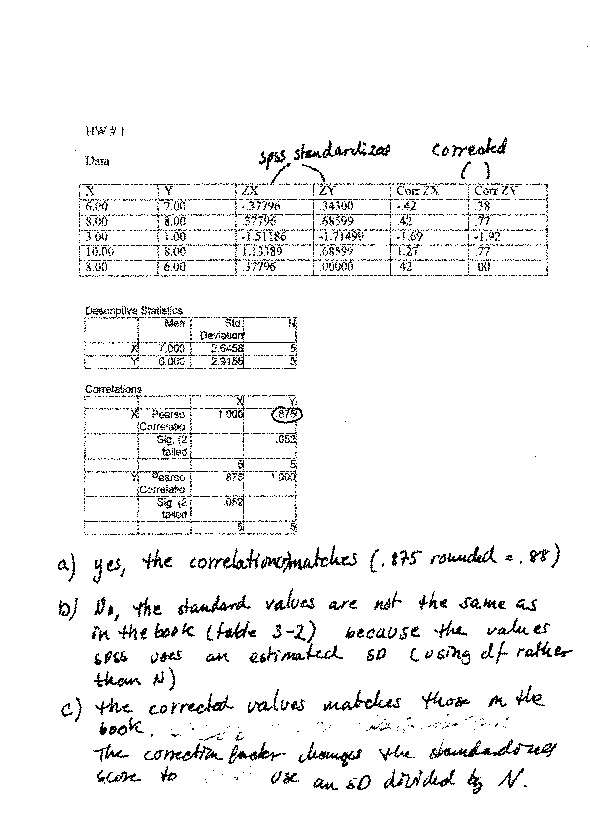 HW # 1
spss standardized
corrected
Data
( )
X Y ZX ZY Corr ZX Corr ZY
6.00 7.00 -.37796 .34300 -.42 .38
8.00 8.00 .37796 .68599 .42 .77
3.00 1.00 -1.51186 -1.71499 -1.69 -1.92
10.00 8.00 1.13389 .68599 1.27 .77
8.00 6.00 .37796 .00000 .42 .00
Descriptive Statistics
Mean Std. N
Deviation
X 7.000 2.6458 5
Y 6.000 2.9155 5
Correlations
X Y
X Pearso 1.000 .875
Correlatio
Sig. (2 .052
tailed
5 5
Y Pearso .875 1.000
Correlatio
Sig. (2 .052
tailed
5 5
a) yes, the correlation matches (.875 rounded = .88)
b) No, the standard values are not the same as
in the book (table 3-2) because the values
spss uses an estimated SD (using df rather
than N)
c) the corrected values matches those in the
book.
The correction factor changes the standardized
score to use an SD divided by N.